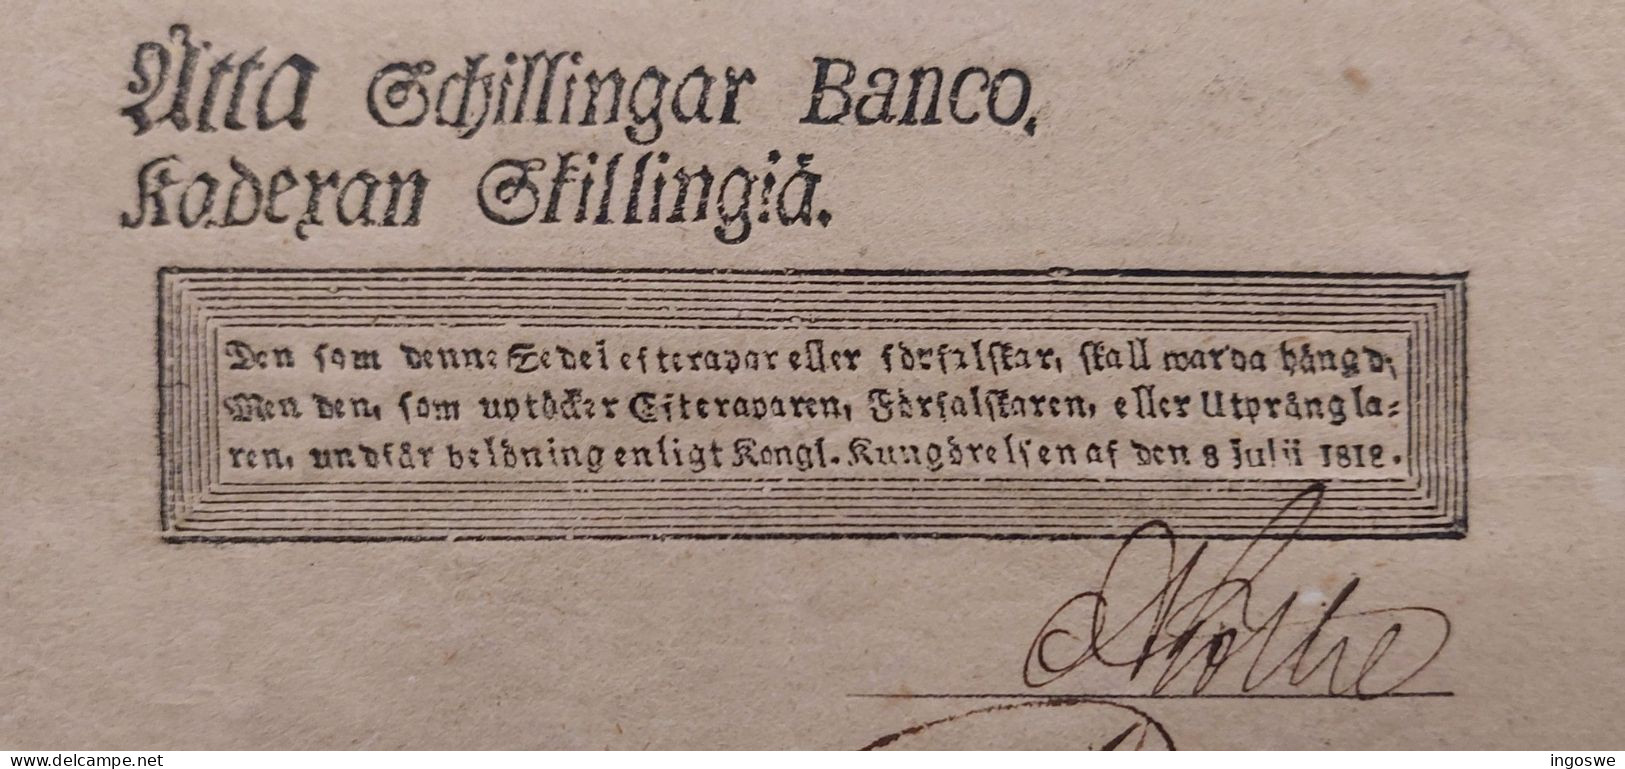 Åtta Schillingar Banco.
Kadexan Skillingiä.
Den som denne Sedel efterapar eller förfalskar, skall warda hängd;
Men den, som uptäcker Efteraparen, Förfalskaren, eller Utprångla=
ren, undfår belöning enligt Kongl. Kungörelsen af den 8 Julii 1812.
www.delcampe.net
ingoswe